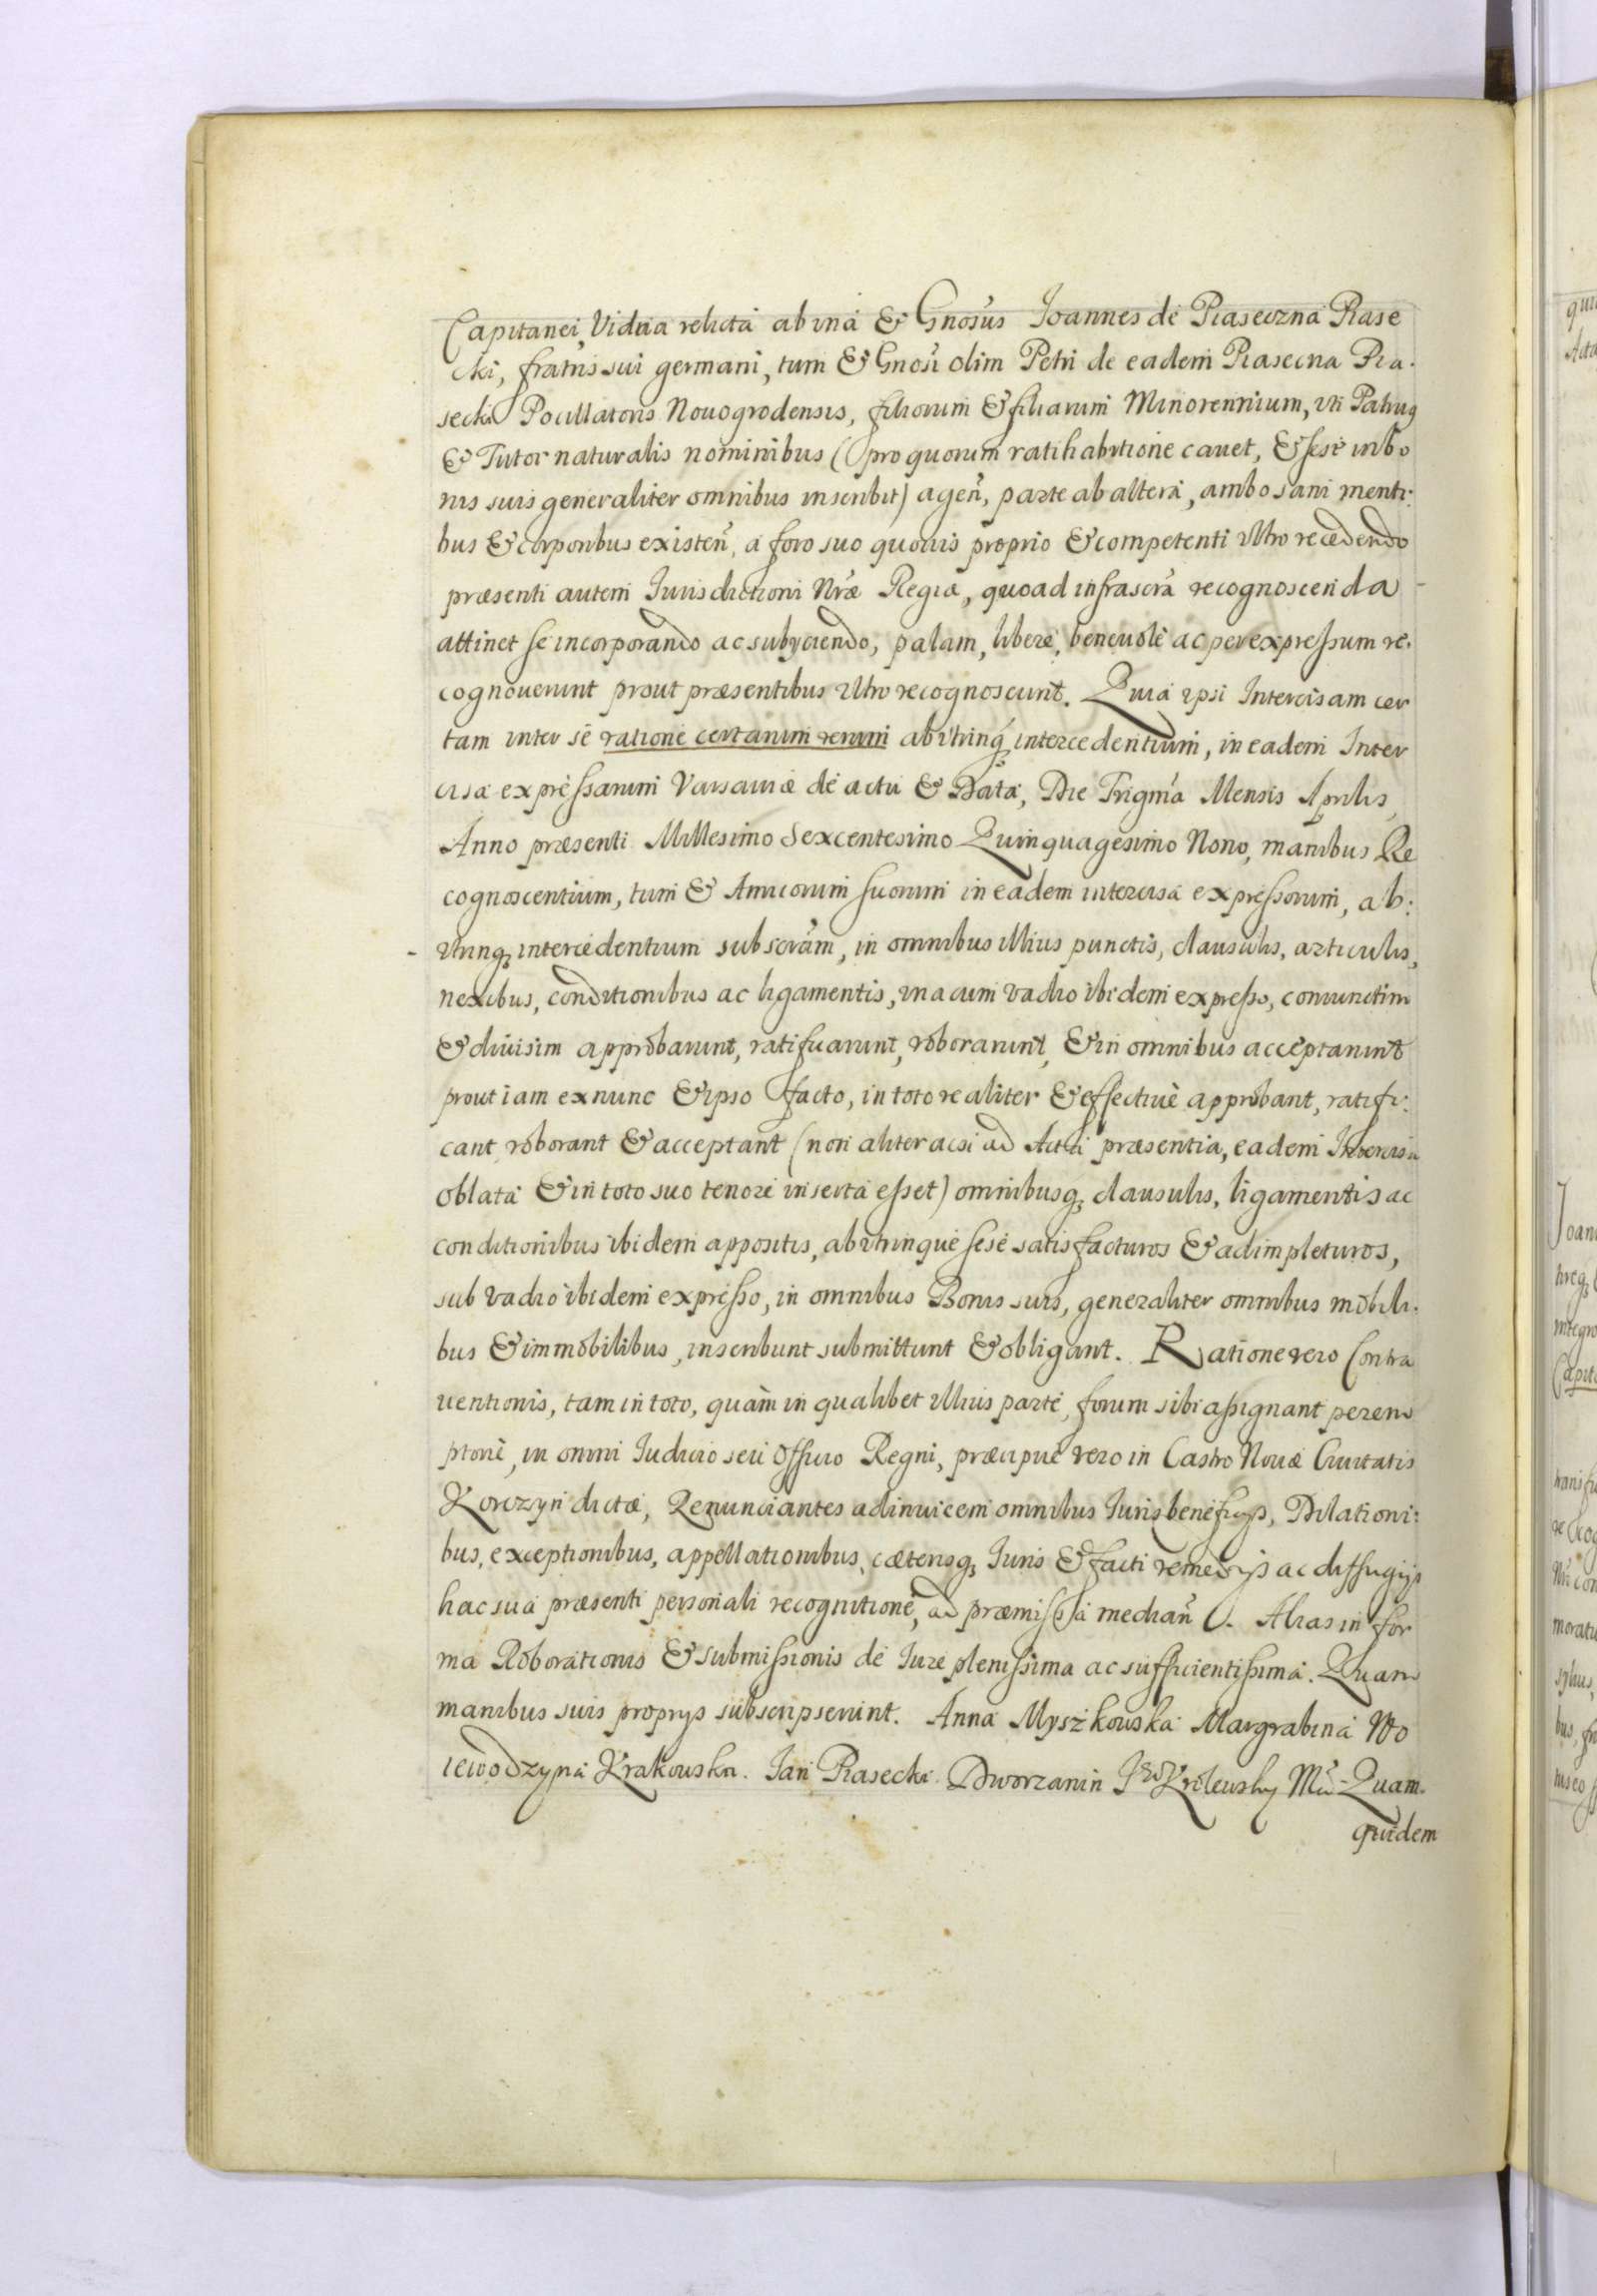 Capitanei, Vidua relicta ab una & Gnosus Ioannes de Piaseczna Piase
cki, fratris sui germani, tum & Gnosi olim Petri de eadem Piasecna Pia.
secki Pocillatoris Nouogrodensis, filiorum & filiarum Minorennium, uti Patruq
& Tutor naturalis nominibus (pro quorum ratihabitione cauet, & sese in bo
nis suis generaliter omnibus inscribit) agen̄, parte ab altera, ambo sani menti:
bus & corporibus existen̄, a foro suo quouis proprio & competenti ultro recedendo
præsenti autem Iurisdictioni Nræ Regiæ, quoad infrascrā recognoscenda
attinet se incorporando ac subijciendo, palam, libere, beneuolè ac per expressum re.
cognouerunt prout præsentibus ultro recognoscunt. Quia ipsi Intercisam cer
tam inter se ratione certarum rerum ab utrinq; intercedentium, in eadem Inter
cisa expressarum Varsauiæ de actu & Data, Die Trigmā Mensis Aprilis,
Anno præsenti Millesimo Sexcentesimo Quinquagesimo Nono, manibus Re
cognoscentium, tum & Amicorum suorum in eadem intercisa expressorum, ab:
utrinq; intercedentium subscrām, in omnibus illius punctis, clausulis, articulis,
nexibus, conditionibus ac ligamentis, una cum vadio ibidem expresso, coniunctim
& diuisim approbarunt, ratificarunt, roborarunt, & in omnibus acceptarunt
prout iam ex nunc & ipso facto, in toto realiter & effectiuè approbant, ratifi:
cant roborant & acceptant (non aliter acsi ad Acta præsentia, eadem Intercisa
oblata & in toto suo tenore inserta esset) omnibusq; clausulis, ligamentis ac
conditionibus ibidem appositis, ab utrinque sese satisfacturos & adimpleturos,
sub vadio ibidem expresso, in omnibus Bonis suis, generaliter omnibus mobili.
bus & immobilibus, inscribunt submittunt & obligant. Ratione vero Contra
uentionis, tam in toto, quàm in qualibet illius parte, forum sibi assignant perem
ptoriè, in omni Iudicio seu Officio Regni, præcipuè vero in Castro Nouæ Ciuitatis
Korczyn dictæ, Renunciantes adinuicem omnibus Iuris beneficijs, Dilationi:
bus, exceptionibus, appellationibus, cæterisq; Iuris & facti remedijs ac diffugijs
hac sua præsenti personali recognitione, ad præmissa median̄. Alias in for
ma Roborationis & submissionis de Iure plenissima ac sufficientissima. Quam
manibus suis proprijs subscripserunt. Anna Myszkowska Margrabina Wo
iewodzyna Krakouska. Ian Piasecki Dworzanin Krolewsky Quam.
quidem